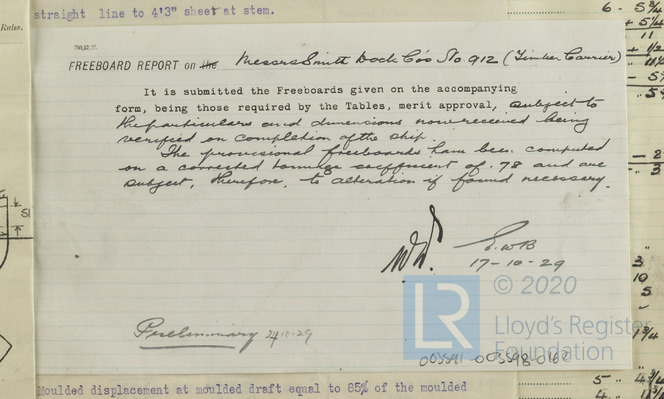 straight line to 4'3" sheet at stem.
Rules.
6 - 5¾
+ 5¼
11
+ 1½
- 5
FREEBOARD REPORT on the Messrs Smith Dock Co's No. 912 (Timber Carrier)
It is submitted the Freeboards given on the accompanying
form, being those required by the Tables, merit approval, subject to
the particulars and dimensions now received being
verified on completion of the ship.
The provisional freeboards have been computed
on a corrected tonnage coefficient of .78 and are
subject, therefore, to alteration if found necessary.
- 2
3
S1
E.W.B
17-10-29
3
10
5
1¾
© 2020
LR
Lloyd's Register
Foundation
Preliminary 24-10-29
003591-003598-0162
Moulded displacement at moulded draft equal to 85% of the moulded
5 4¾
4